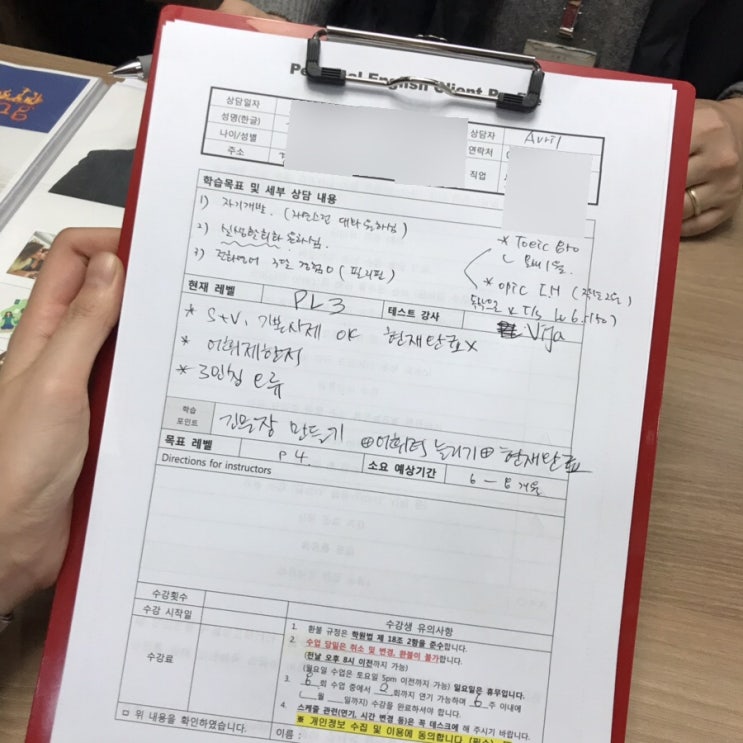 상담일자
성명(한글)
나이/성별
주소
상담자 Avril
연락처
직업
학습목표 및 세부 상담 내용
1) 자기개발.
2) 실생활회화 원하심.
3) 전화영어 3달 경험O (필리핀)
* Toeic 810
현재 레벨 PL3 테스트 강사 Vrja
* S+V, 기본시제 OK 현재완료X
* 어휘제한적
* 3인칭 오류
학습 포인트 긴문장 만들기 ⊕어휘력 늘리기⊕ 현재완료
목표 레벨 P4. 소요 예상기간 6 - 8 개월
Directions for instructors
수강횟수
수강 시작일
수강료
수강생 유의사항
1. 환불 규정은 학원법 제 18조 2항을 준수합니다.
2. 수업 당일은 취소 및 변경, 환불이 불가합니다.
(전날 오후 8시 이전까지 가능)
(월요일 수업은 토요일 5pm 이전까지 가능) 일요일은 휴무입니다.
3. 8회 수업 중에서 2회까지 연기 가능하며 6주 이내에
( 월 일까지) 수강을 완료하셔야 합니다.
4. 스케줄 관련(연기, 시간 변경 등)은 꼭 데스크에 해 주시기 바랍니다.
ㅁ 위 내용을 확인하였습니다.
※ 개인정보 수집 및 이용에 동의합니다
이름 :